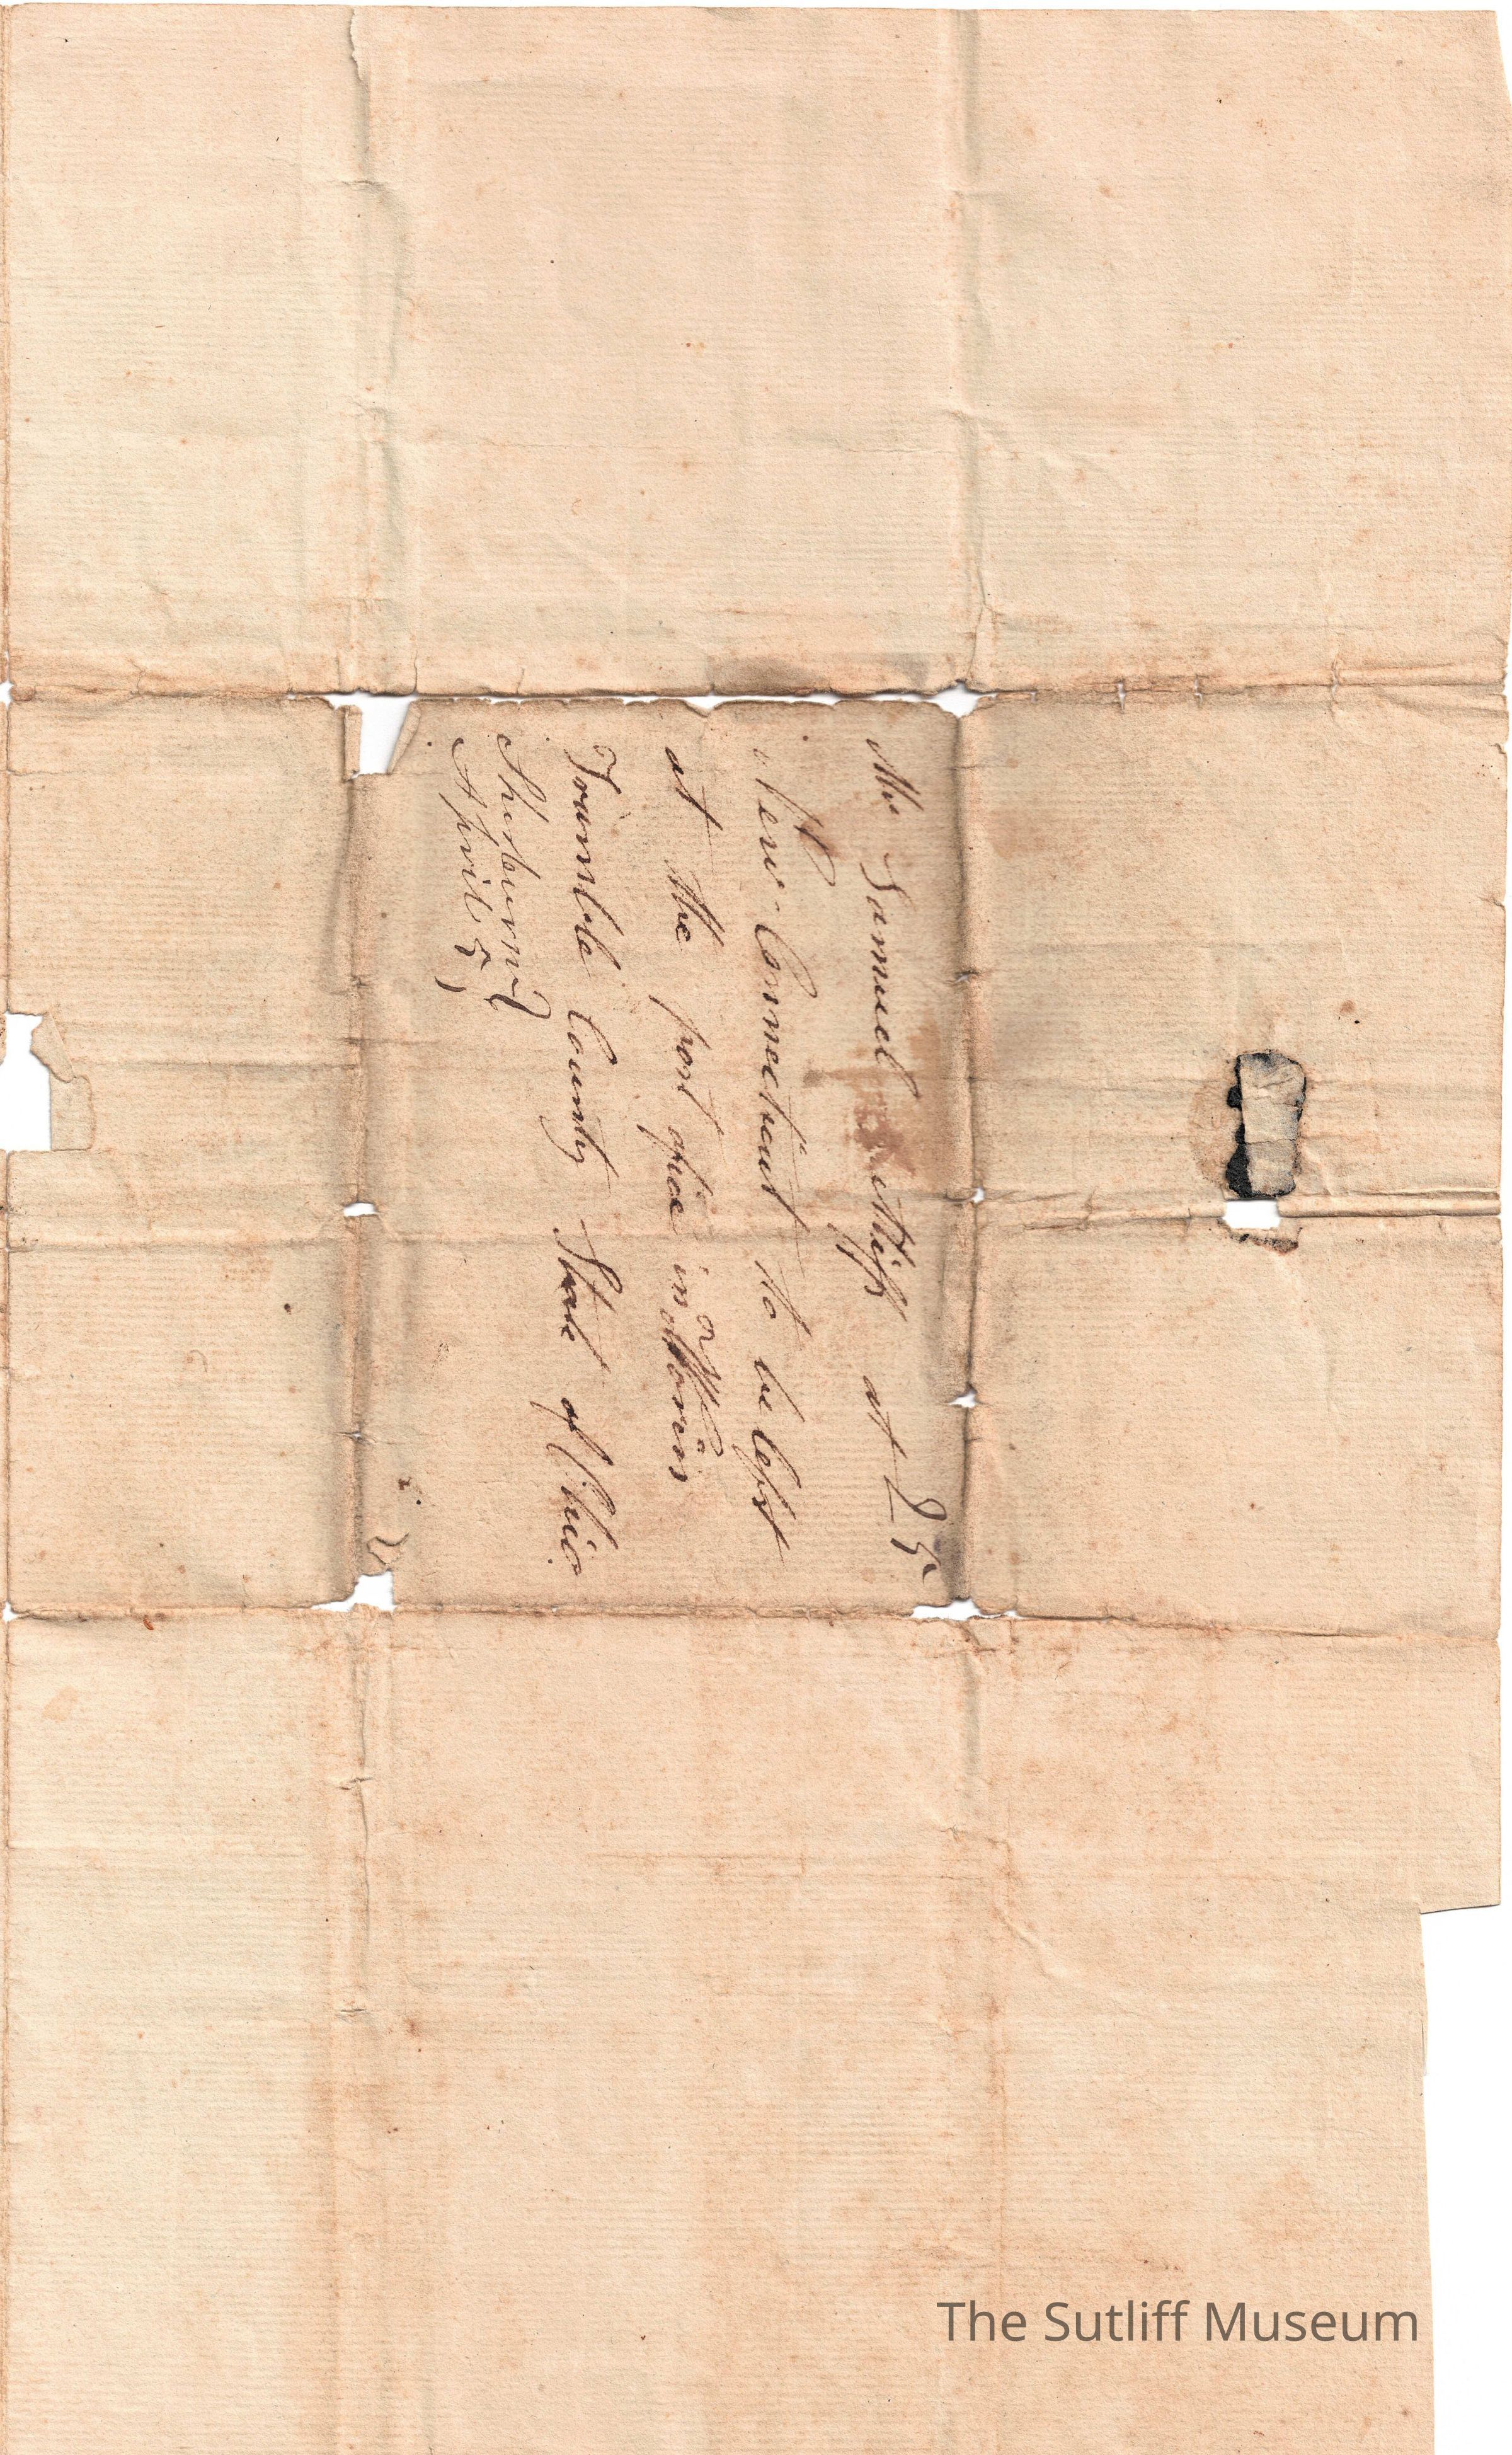 Mr Samuel at 25
New Connecticut to be left
at the post ofice in
Trumble County State of Ohio
Sherburn
April 5
The Sutliff Museum